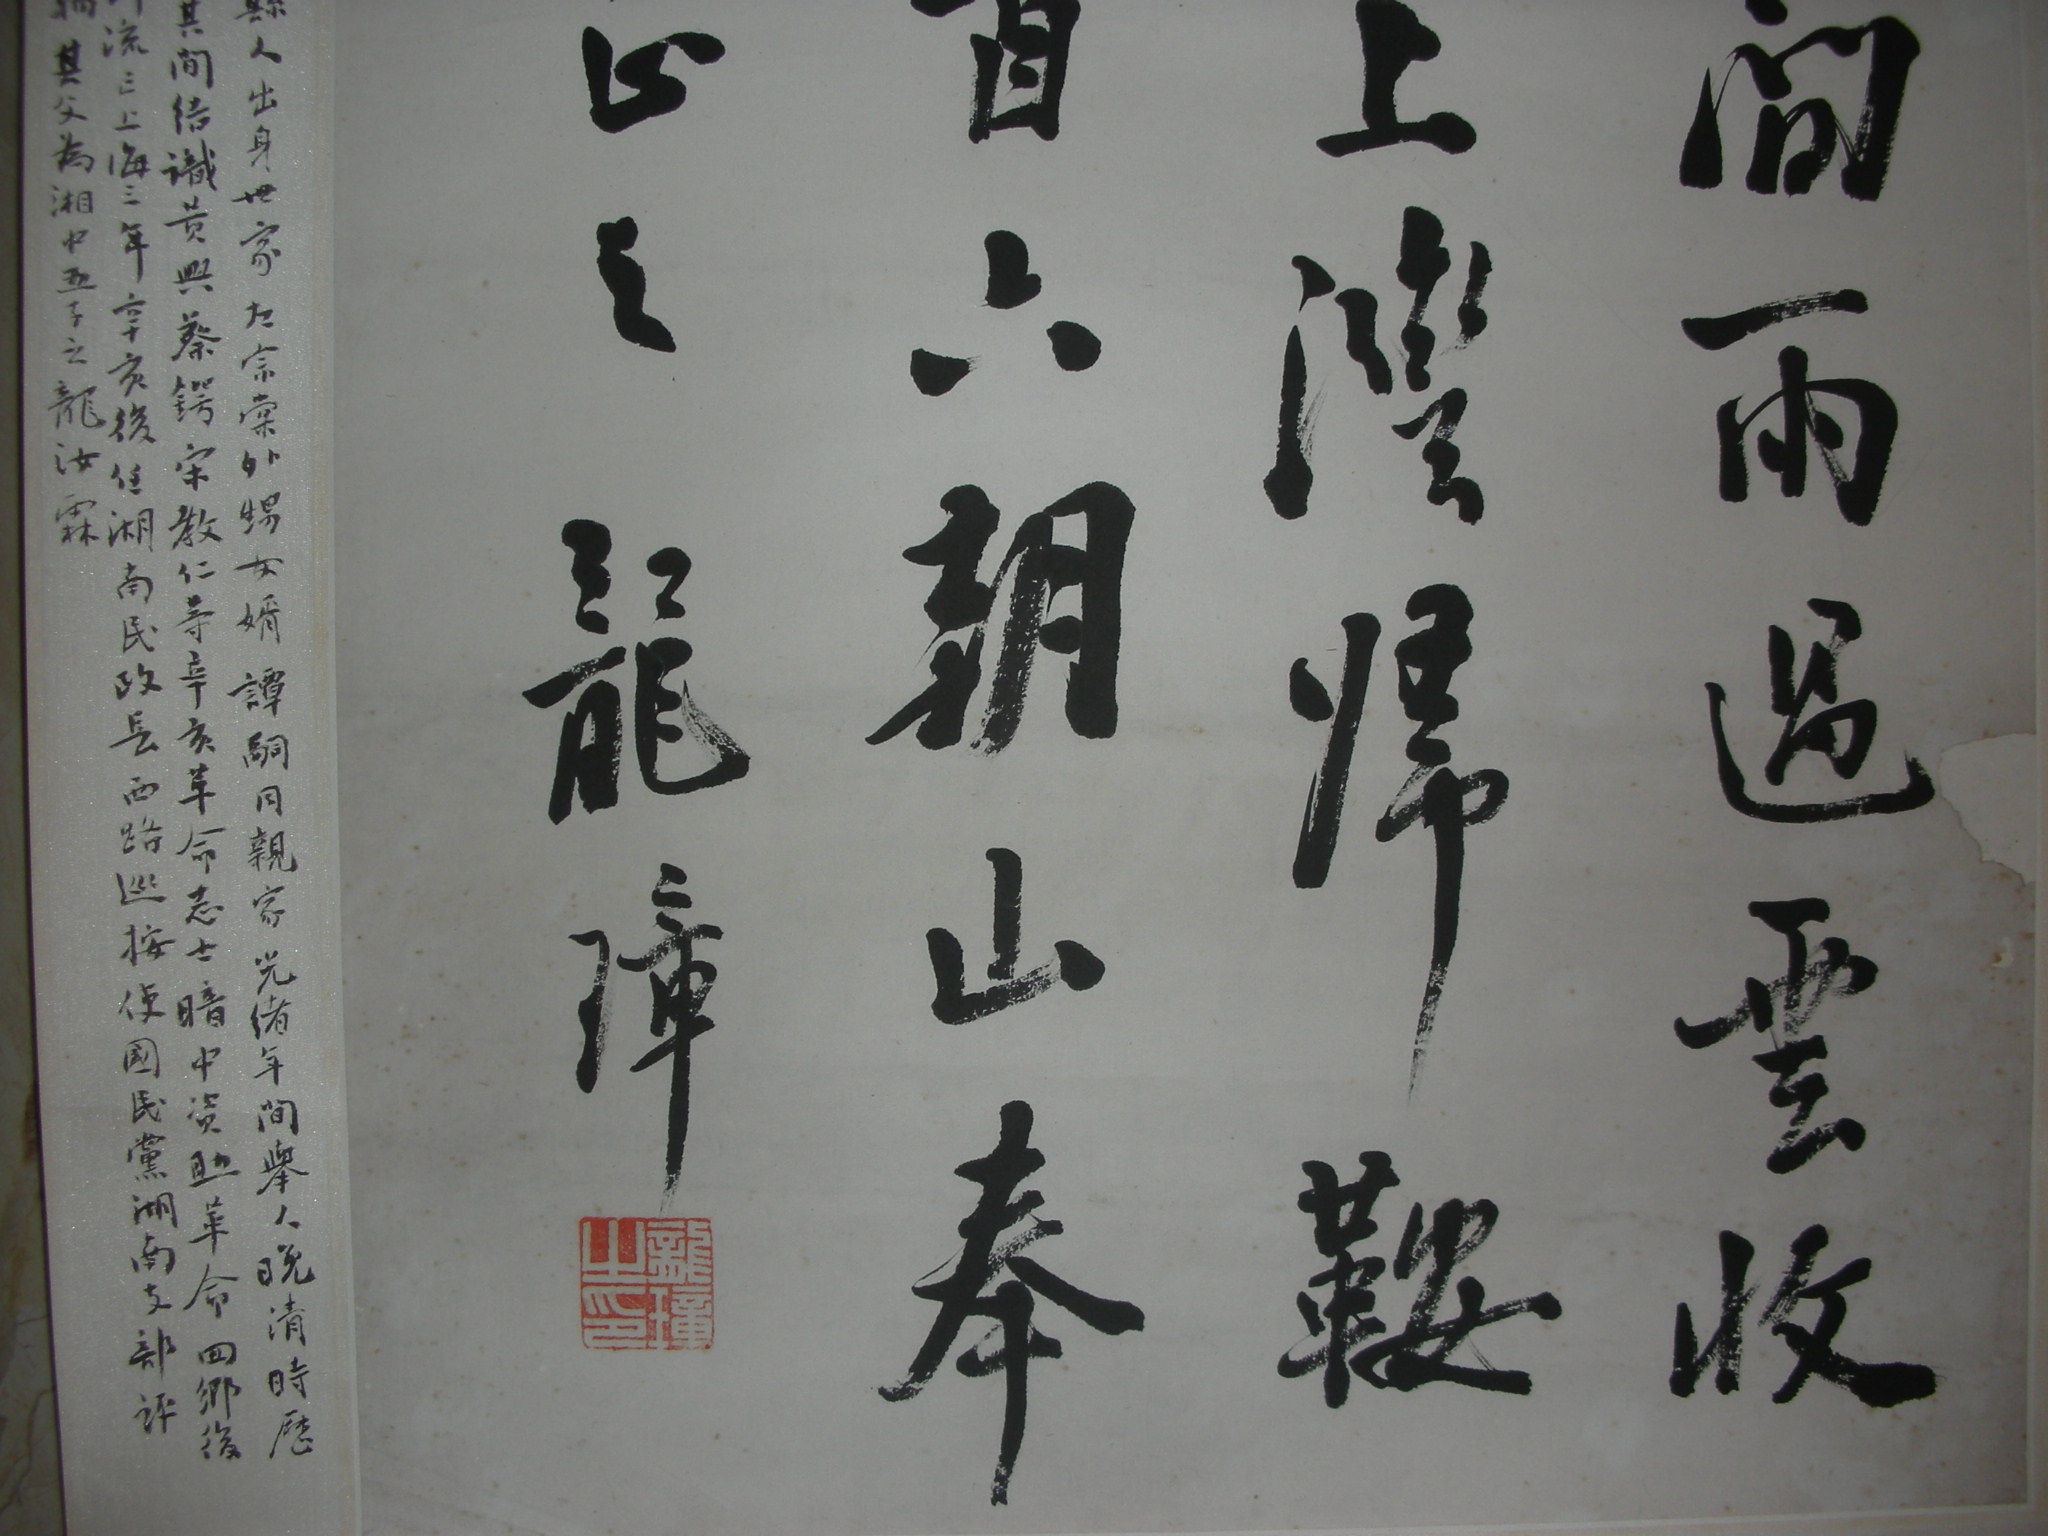 間雨過雲收
上灣歸鞍
首六朝山奉
正之龍璋
龍璋之印
縣人出身世家左宗棠外甥女婿譚嗣同親家光緒年間舉人晚清時歷
其間結識黃興蔡鍔宋教仁等辛亥革命志士暗中资助革命回鄉後
流亡上海三年辛亥後任湖南民政長西路巡按使國民黨湖南支部評
其父為湘中五子之龍汝霖